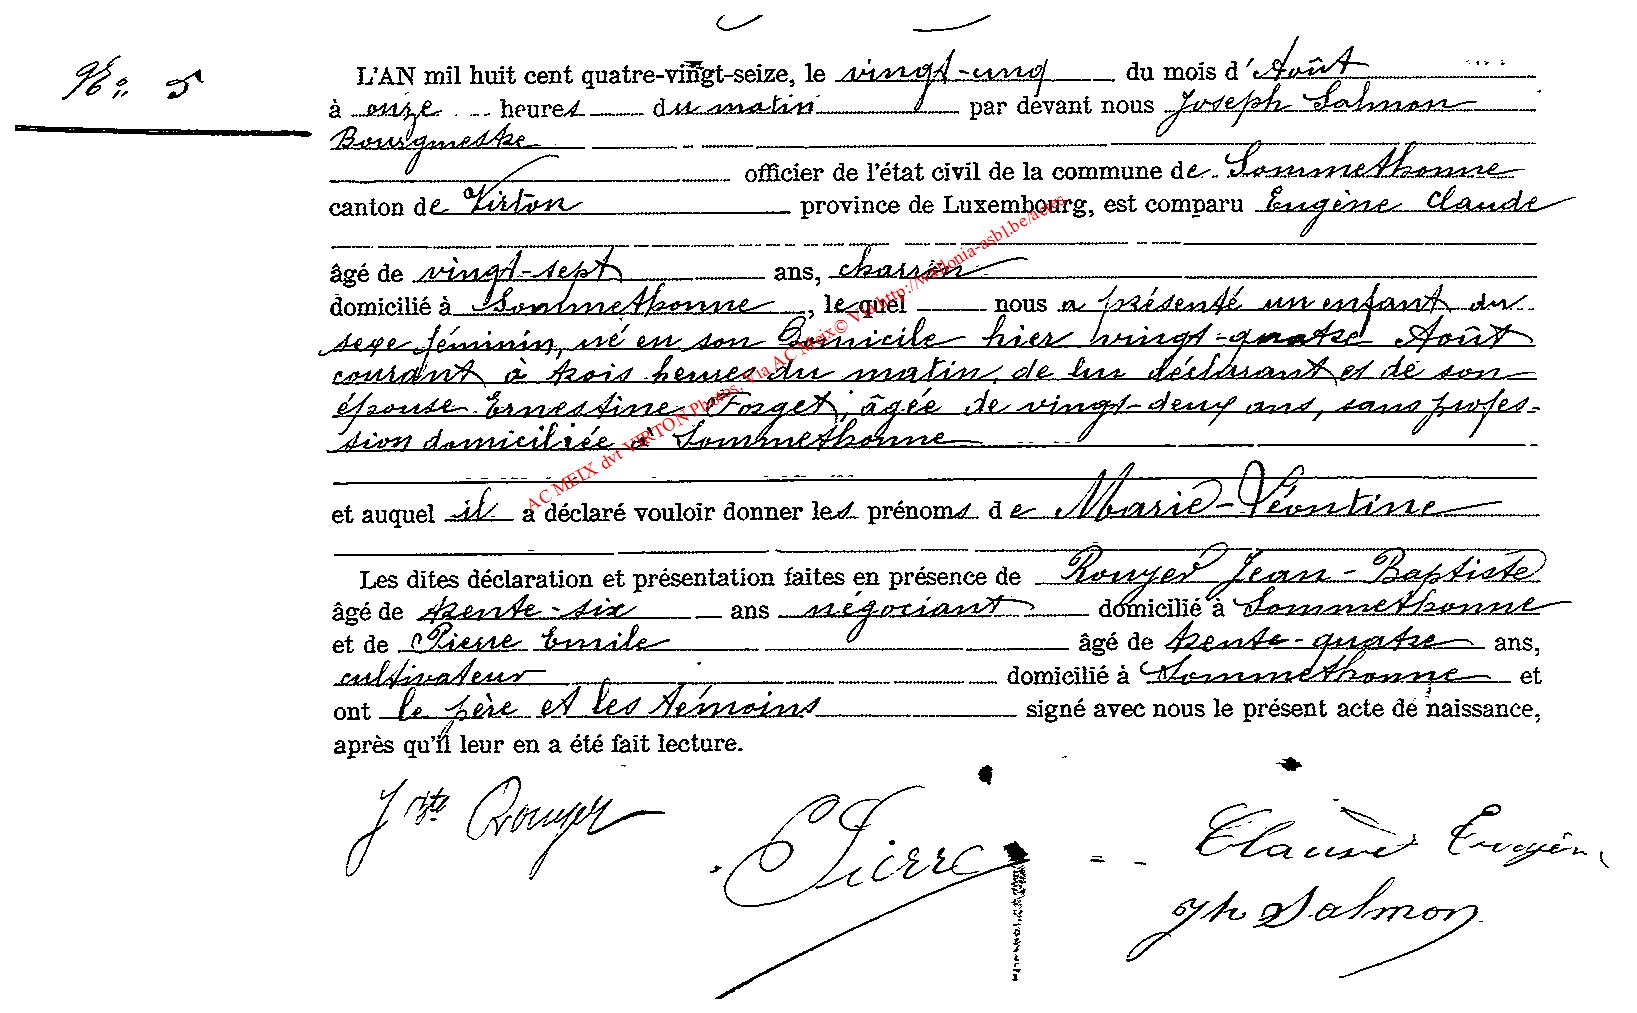 No. 5
L'AN mil huit cent quatre-vingt-seize, le vingt-cinq du mois d'Août
à onze heures du matin par devant nous Joseph Salmon
Bourgmestre
officier de l'état civil de la commune de Sommethonne
canton de Virton province de Luxembourg, est comparu Eugène Claude
âgé de vingt-sept ans, charron
domicilié à Sommethonne, lequel nous a présenté un enfant du
sexe féminin, né en son Domicile hier vingt-quatre Août
courant à trois heures du matin, de lui déclarant et de son
épouse Ernestine Forget, âgée de vingt-deux ans, sans profes-
sion domiciliée à Sommethonne
et auquel il a déclaré vouloir donner les prénoms de Marie-Léontine
Les dites déclaration et présentation faites en présence de Rouyer Jean-Baptiste
âgé de trente-six ans négociant domicilié à Sommethonne
et de Pierre Emile âgé de trente-quatre ans,
cultivateur domicilié à Sommethonne et
ont le père et les témoins signé avec nous le présent acte de naissance,
après qu'il leur en a été fait lecture.
J Bte Rouyer
E Pierre
Claude Eugène
Jh Salmon
AC MEIX dvt VIRTON Photos. Via AC Meix© Via http://wallonia-asbl.be/actes